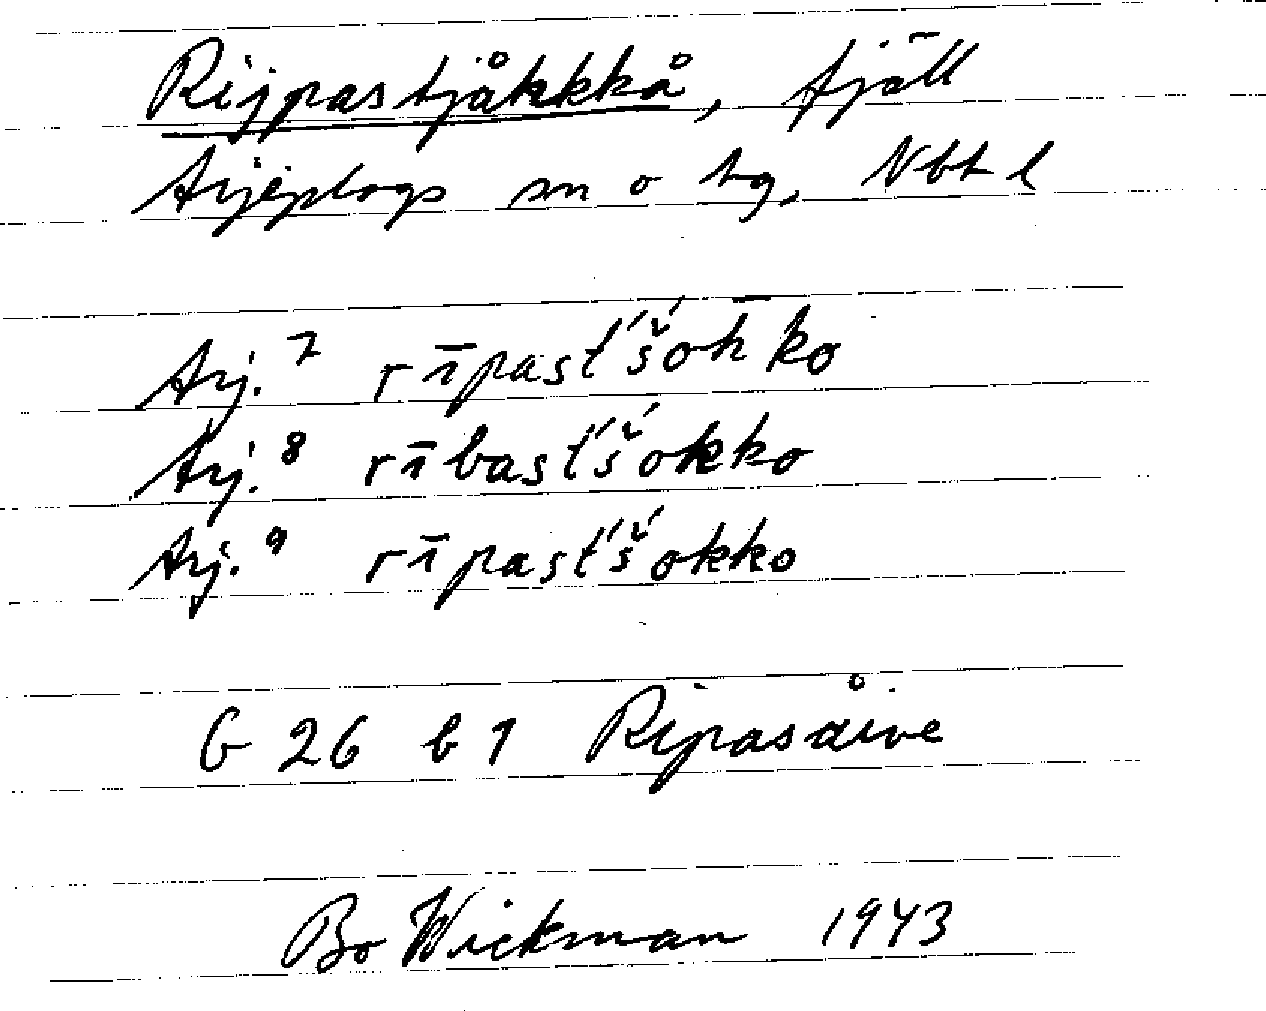 Rijpastjåkkkå, fjäll
Arjeplogs sn o tg, Nbt l
Arj.⁷ rīpast́š́oh̄ko
Arj.⁸ rībast́š́okko
Arj.⁹ rīpast́š́okko
G 26 b 1 Ripasåive
Bo Wickman 1943